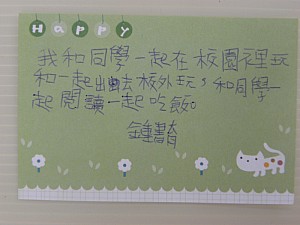 Happy
我和同學一起在校園裡玩
和一起出去校外玩，和同學一
起閱讀一起吃飯。
鍾